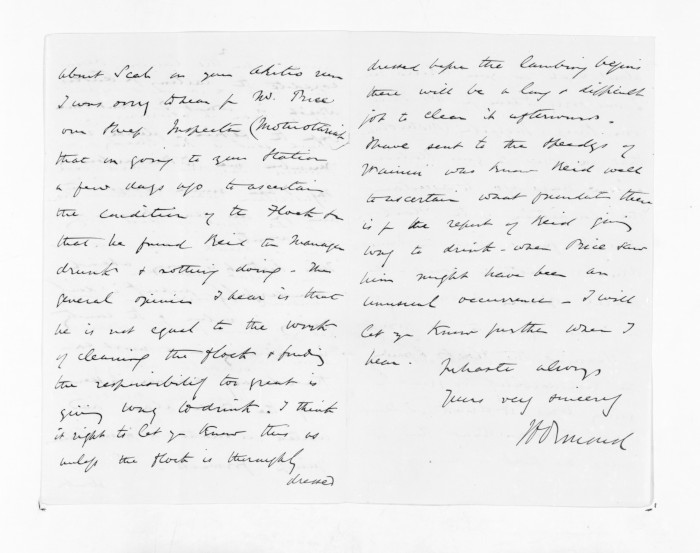 about Scab on your Akitio run
I was sorry to hear fr Mr. Price
our Sheep Inspector (Motuotaria)
that on going to your Station
a few days ago to ascertain
the condition of the Flock
that he found Reid the Manager
drunk & nothing doing. The
general opinion I hear is that
he is not equal to the work
of cleaning the flock & finding
the responsibility too great is
giving way to drink. I think
it right to let you know this as
unless the flock is thoroughly
dressed
dressed before the lambing begins
there will be a long & difficult
job to clean it afterwards.
I have sent to the of
who know Reid well
to ascertain what foundation there
is for the report of Reid giving
way to drink - when Price saw
him might have been an
unusual occurrence - I will
let you know further when I
hear.
In haste always
Yours very sincerely
JD Ormond